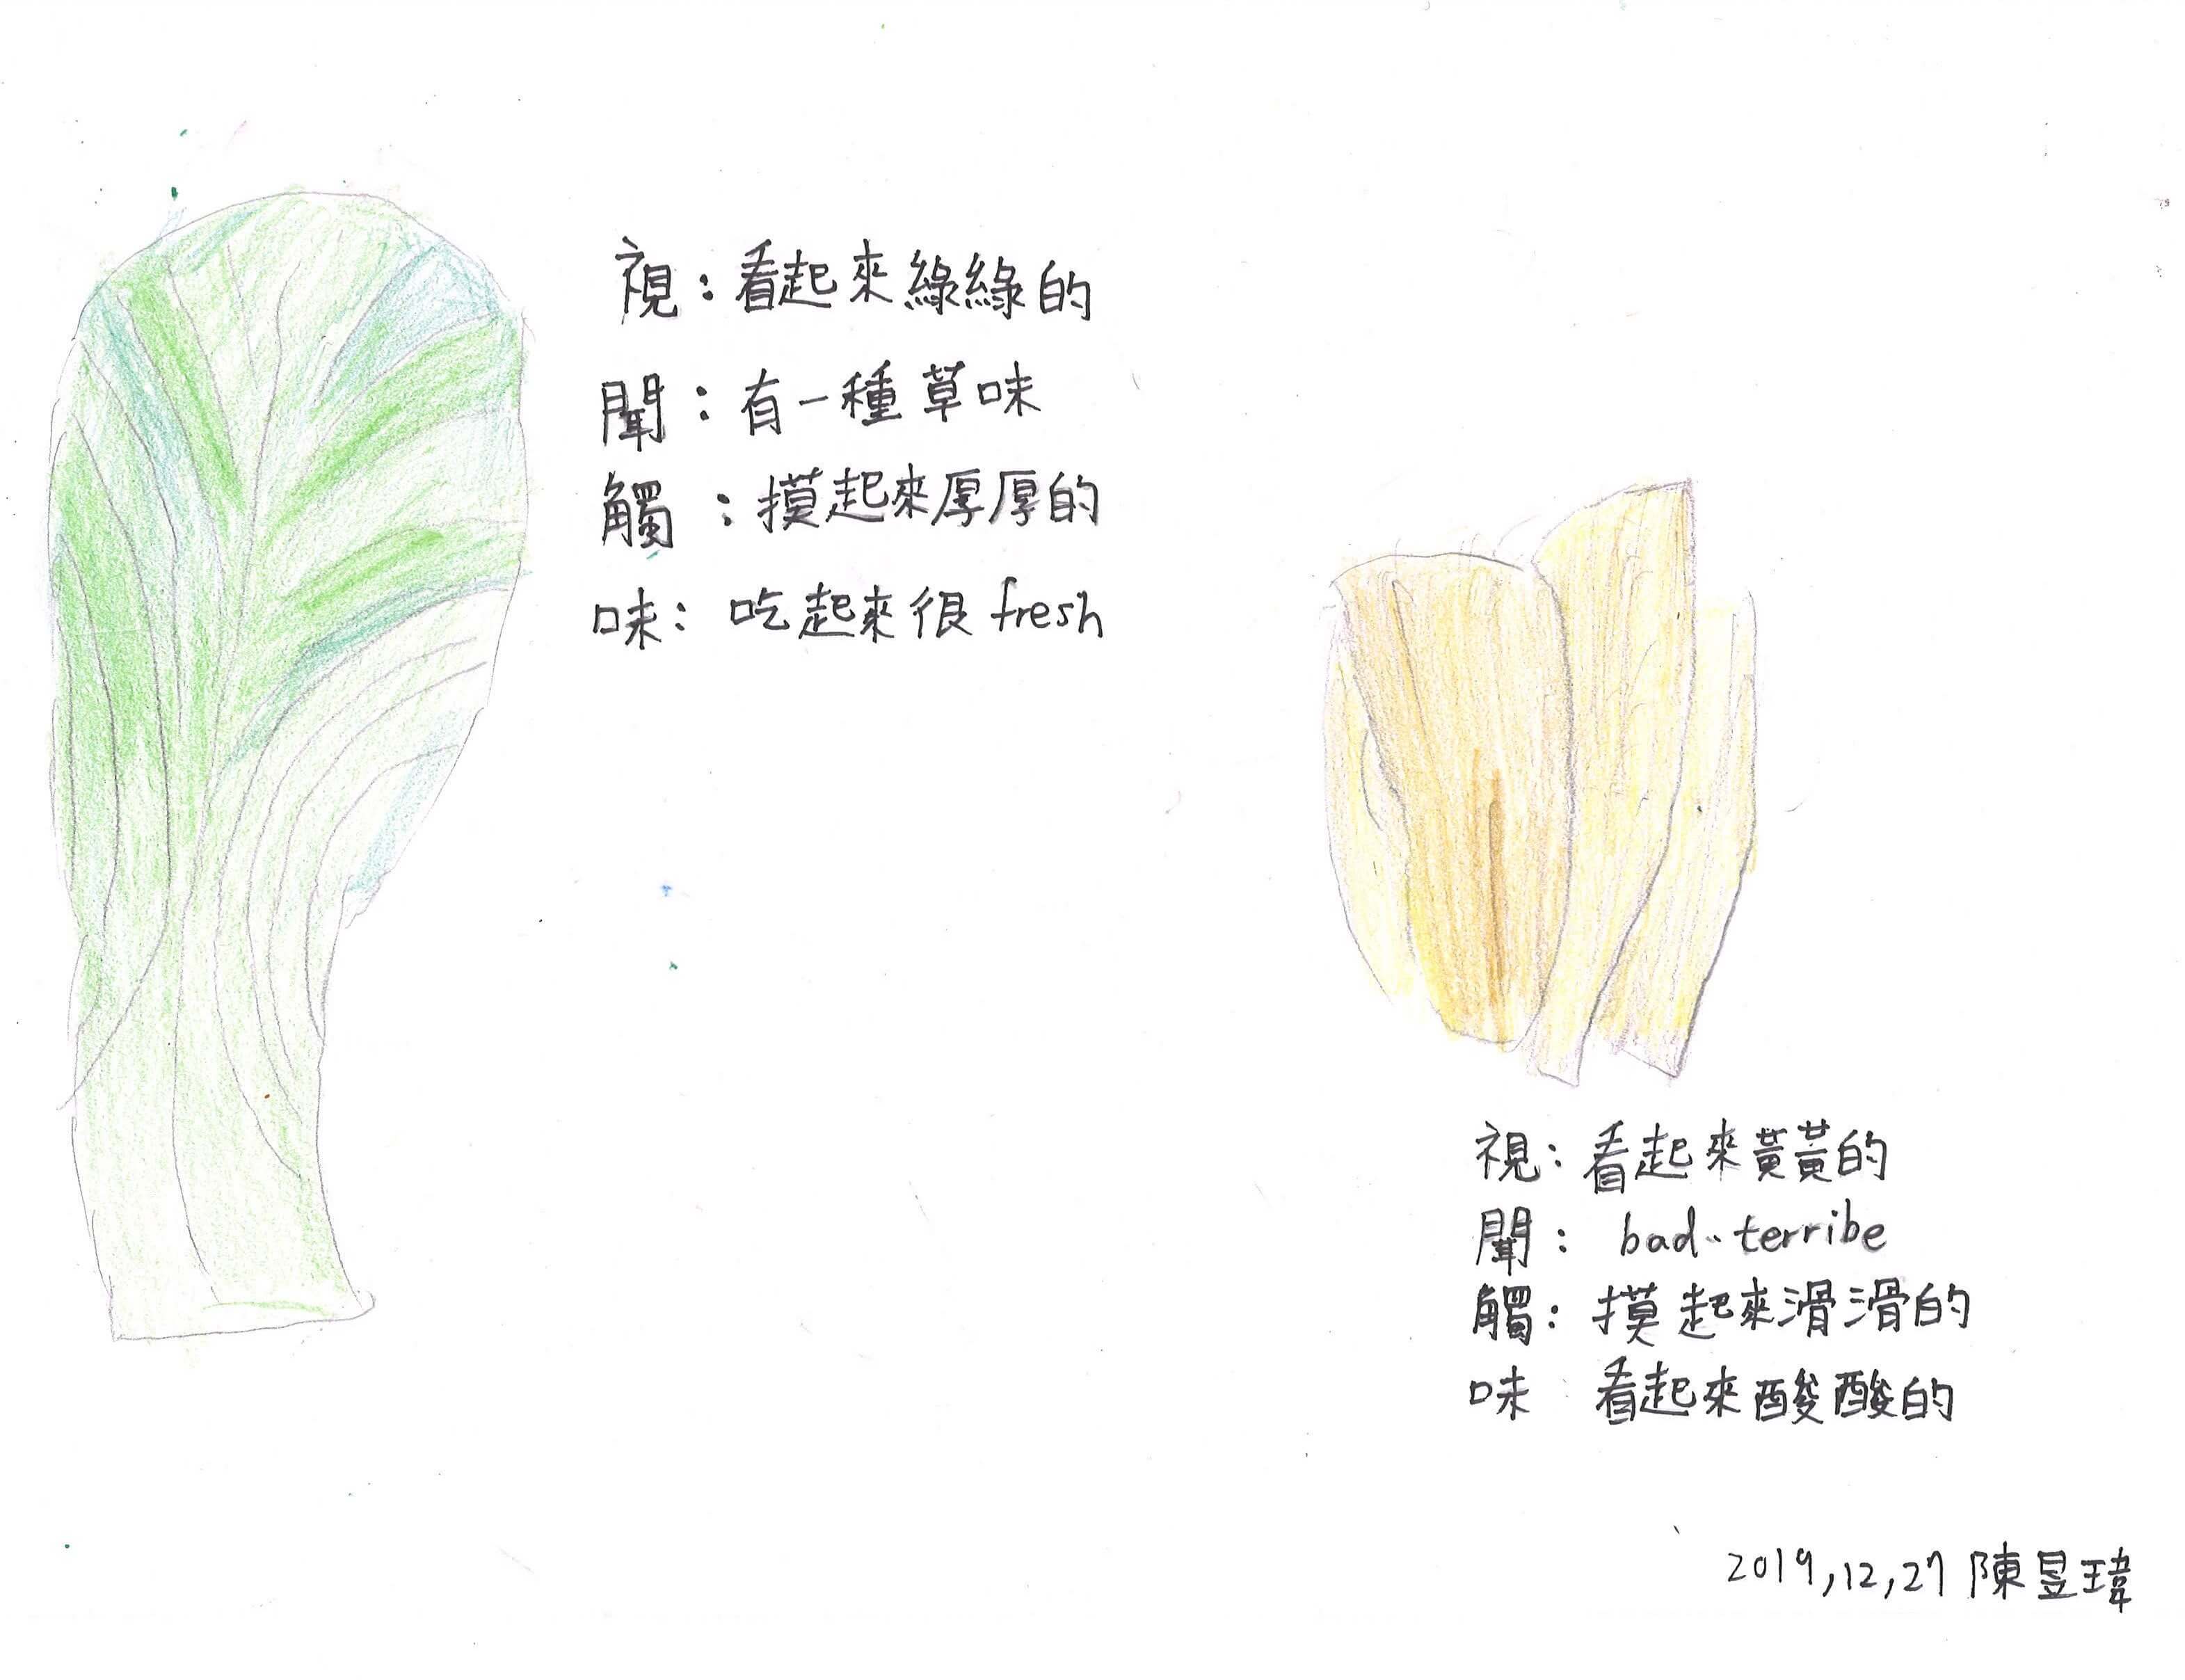 視：看起來綠綠的
聞：有一種草味
觸：摸起來厚厚的
味：吃起來很 fresh
視：看起來黃黃的
聞： bad.. terribe
觸：摸起來滑滑的
味 看起來酸酸的
2019,12,27 陳昱瑋